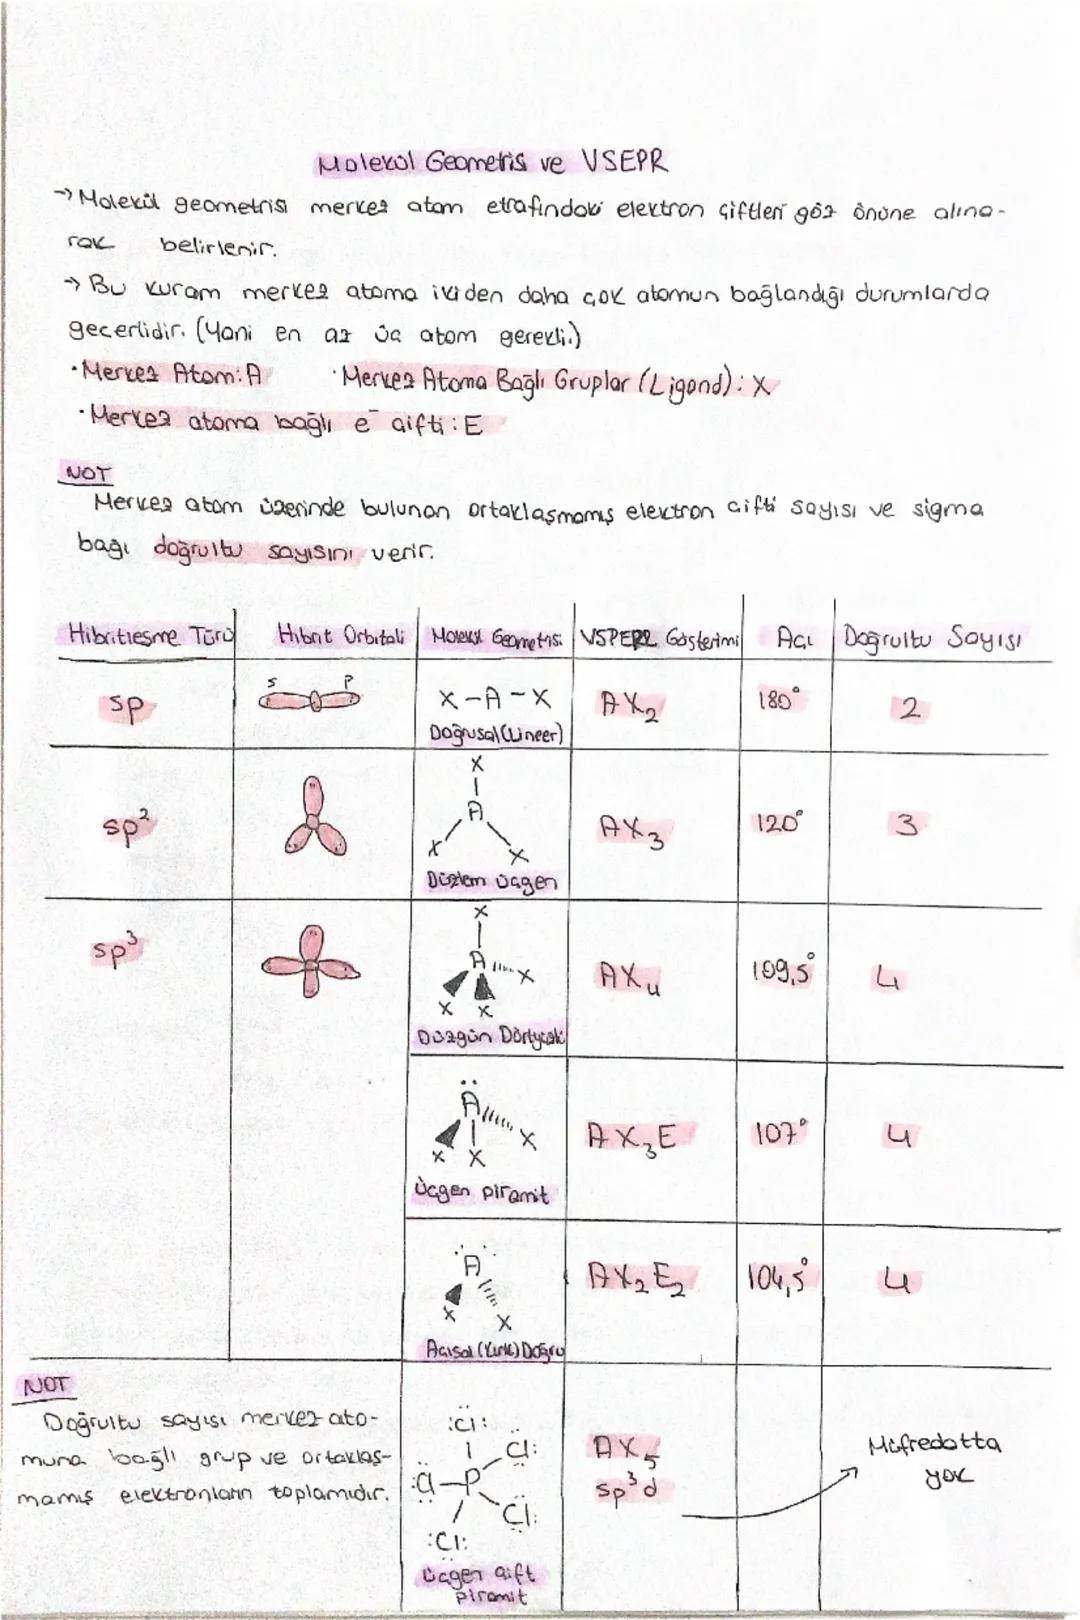 Molekül Geometrisi ve VSEPR
→ Molekül geometrisi merkez atom etrafındaki elektron çiftleri göz önüne alına-
rak belirlenir.
→ Bu kuram merkez atoma ikiden daha çok atomun bağlandığı durumlarda
geçerlidir. (Yani en az üç atom gerekli.)
· Merkez Atom: A · Merkez Atoma Bağlı Gruplar (Ligand): X
· Merkez atoma bağlı e⁻ çifti : E
NOT
Merkez atom üzerinde bulunan ortaklaşmamış elektron çifti sayısı ve sigma
bağı doğrultu sayısını verir.
Hibritleşme Türü Hibrit Orbitali Molekül Geometrisi VSPER Gösterimi Açı Doğrultu Sayısı
s p
sp X-A-X AX₂ 180° 2
Doğrusal (Lineer)
X
A
sp² AX₃ 120° 3
X X
Düzlem üçgen
X
sp³ A X AX₄ 109,5° 4
X X
Düzgün Dörtyüzlü
Ä
X AX₃E 107° 4
X X
Üçgen piramit
A AX₂E₂ 104,5° 4
X X
Açısal (Kırık) Doğru
NOT
Doğrultu sayısı merkez ato-
muna bağlı grup ve ortaklaş-
mamış elektronların toplamıdır.
:Cl:
Cl:
:Cl-P
Cl:
:Cl:
Üçgen çift
piramit
AX₅
sp³d
Müfredatta
yok